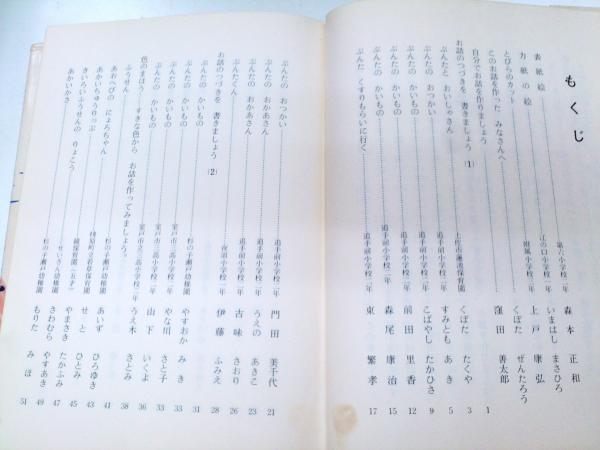 もくじ
表紙絵 第六小学校二年 森本 正和
力紙の絵 江の口小学校一年 いまはし まさひろ
とびらのカット 附属小学校一年 上戸 康弘
このお話を作った みなさんへ くぼた ぜんたろう
自分でお話を作りましょう 窪田 善太郎 1
お話のつづきを 書きましょう (1) 3
ぶんたと おいしゃさん 土佐市蓮池保育園 くぼた たくや 5
ぶんたの おつかい 追手前小学校一年 すみとも あき 9
ぶんたの かいもの 追手前小学校一年 こばやし たかひさ 12
ぶんたの かいもの 追手前小学校二年 前田 里香 15
ぶんたの かいもの 追手前小学校二年 森尾 康治 17
ぶんた くすりもらいに行く 追手前小学校二年 東 繁孝
ぶんたの おつかい 追手前小学校二年 門田 美千代 21
ぶんたの おかあさん 追手前小学校一年 うえの あきこ 23
ぶんたの おかあさん 追手前小学校二年 古味 さおり 26
ぶんたくん 夜須小学校一年 伊藤 ふみえ 28
お話のつづきを 書きましょう (2) 31
ぶんたの かいもの 杉の子瀬戸幼稚園 やすおか みき 33
ぶんたの かいもの 室戸市立三高小学校一年 やな川 さと子 33
ぶんたの かいもの 室戸市立三高小学校二年 山下 いくよ 36
ぶんたの かいもの 室戸市立三高小学校二年 うえ木 さとみ 38
色のまほう―すきな色から お話を作ってみましょう。 38
ふうせん 杉の子瀬戸幼稚園 あいず ひろゆき 41
あおへびの にょろちゃん せと ひとみ 43
あかいちゅうりっぷ 保育園 やまさき たかふみ 45
きいろいふうせんの りょこう せいきん幼稚園 さわむら やすあき 47
あかいかさ 杉の子瀬戸幼稚園 もりた みほ 49
51